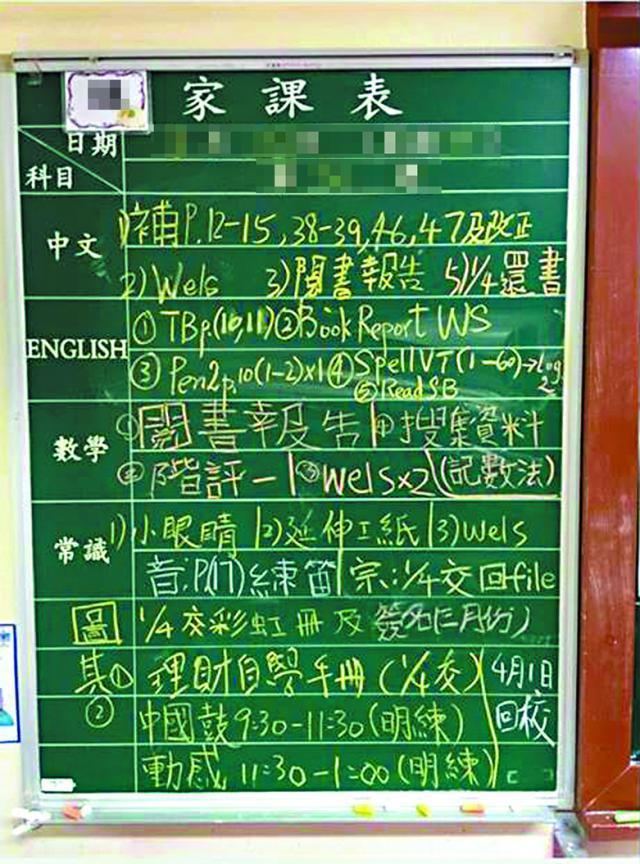 家課表
日期
科目
中文
1)補P.12-15,38-39,46,47及改正
2)Wels 3)閱書報告 5)1/4還書
ENGLISH
①TBp.(10,11)②Book Report WS
③Pen2p.10(1-2)x1④SpellVT(1-60)→Log 2
⑤ReadSB
數學
①閱書報告|搜集資料
②階評一|③Welsx2(記數法)
常識
1)小眼睛|2)延伸工紙|3)Wels
音:P.(17)練笛|宗:1/4交回file
圖 1/4交彩虹冊及簽名(三月份)
其① 理財自學手冊(1/4交)
4月1日
回校
② 中國鼓9:30-11:30(明練)
動感 11:30-1:00(明練)